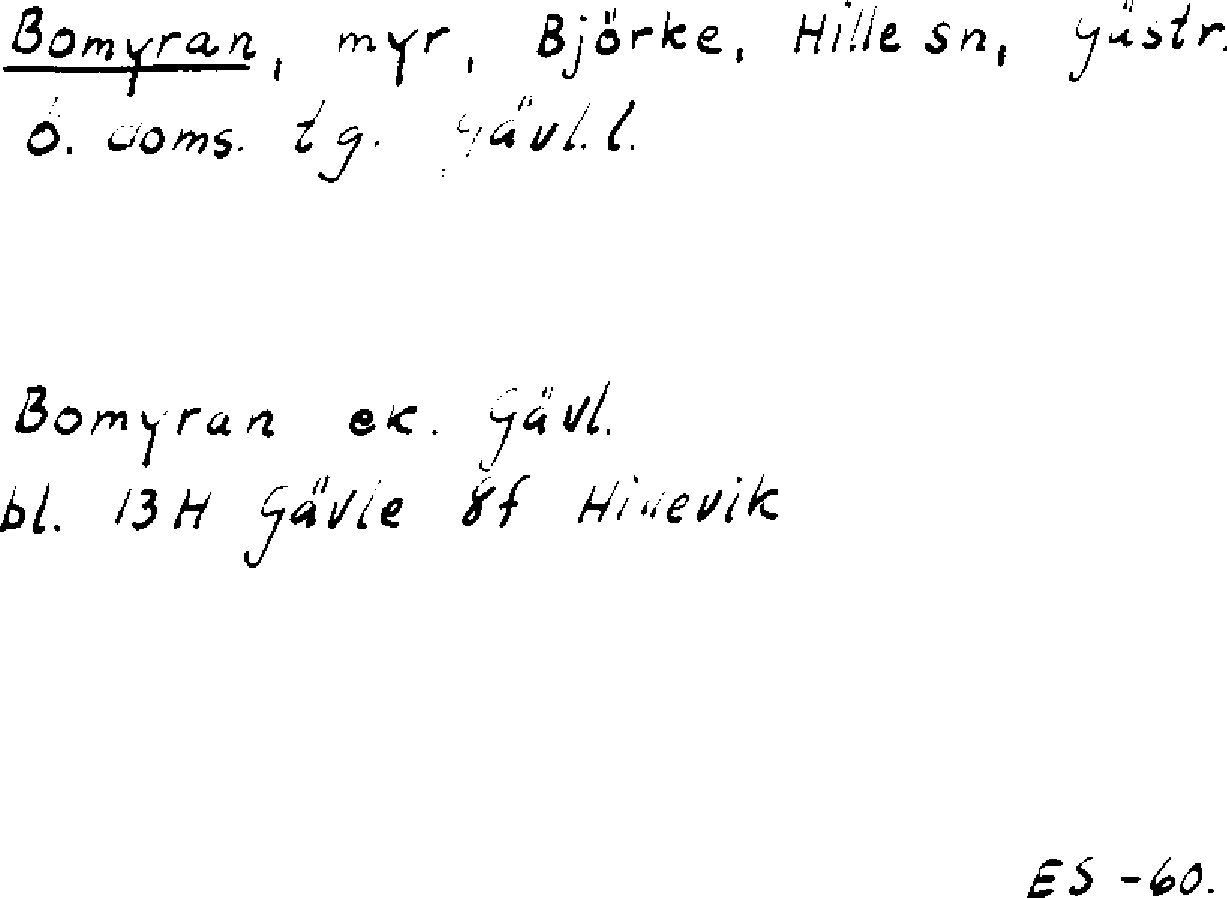 Bomyran, myr, Björke, Hille sn, Gästr.
Ö. doms. tg. Gävl. l.
Bomyran ek. Gävl.
bl. 13H Gävle 8f Hillevik
ES -60.